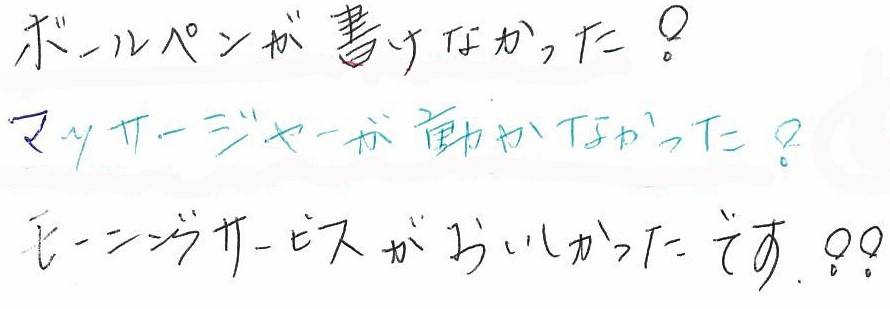 ボールペンが書けなかった?
マッサージャーが動かなかった?
モーニングサービスがおいしかったです.??